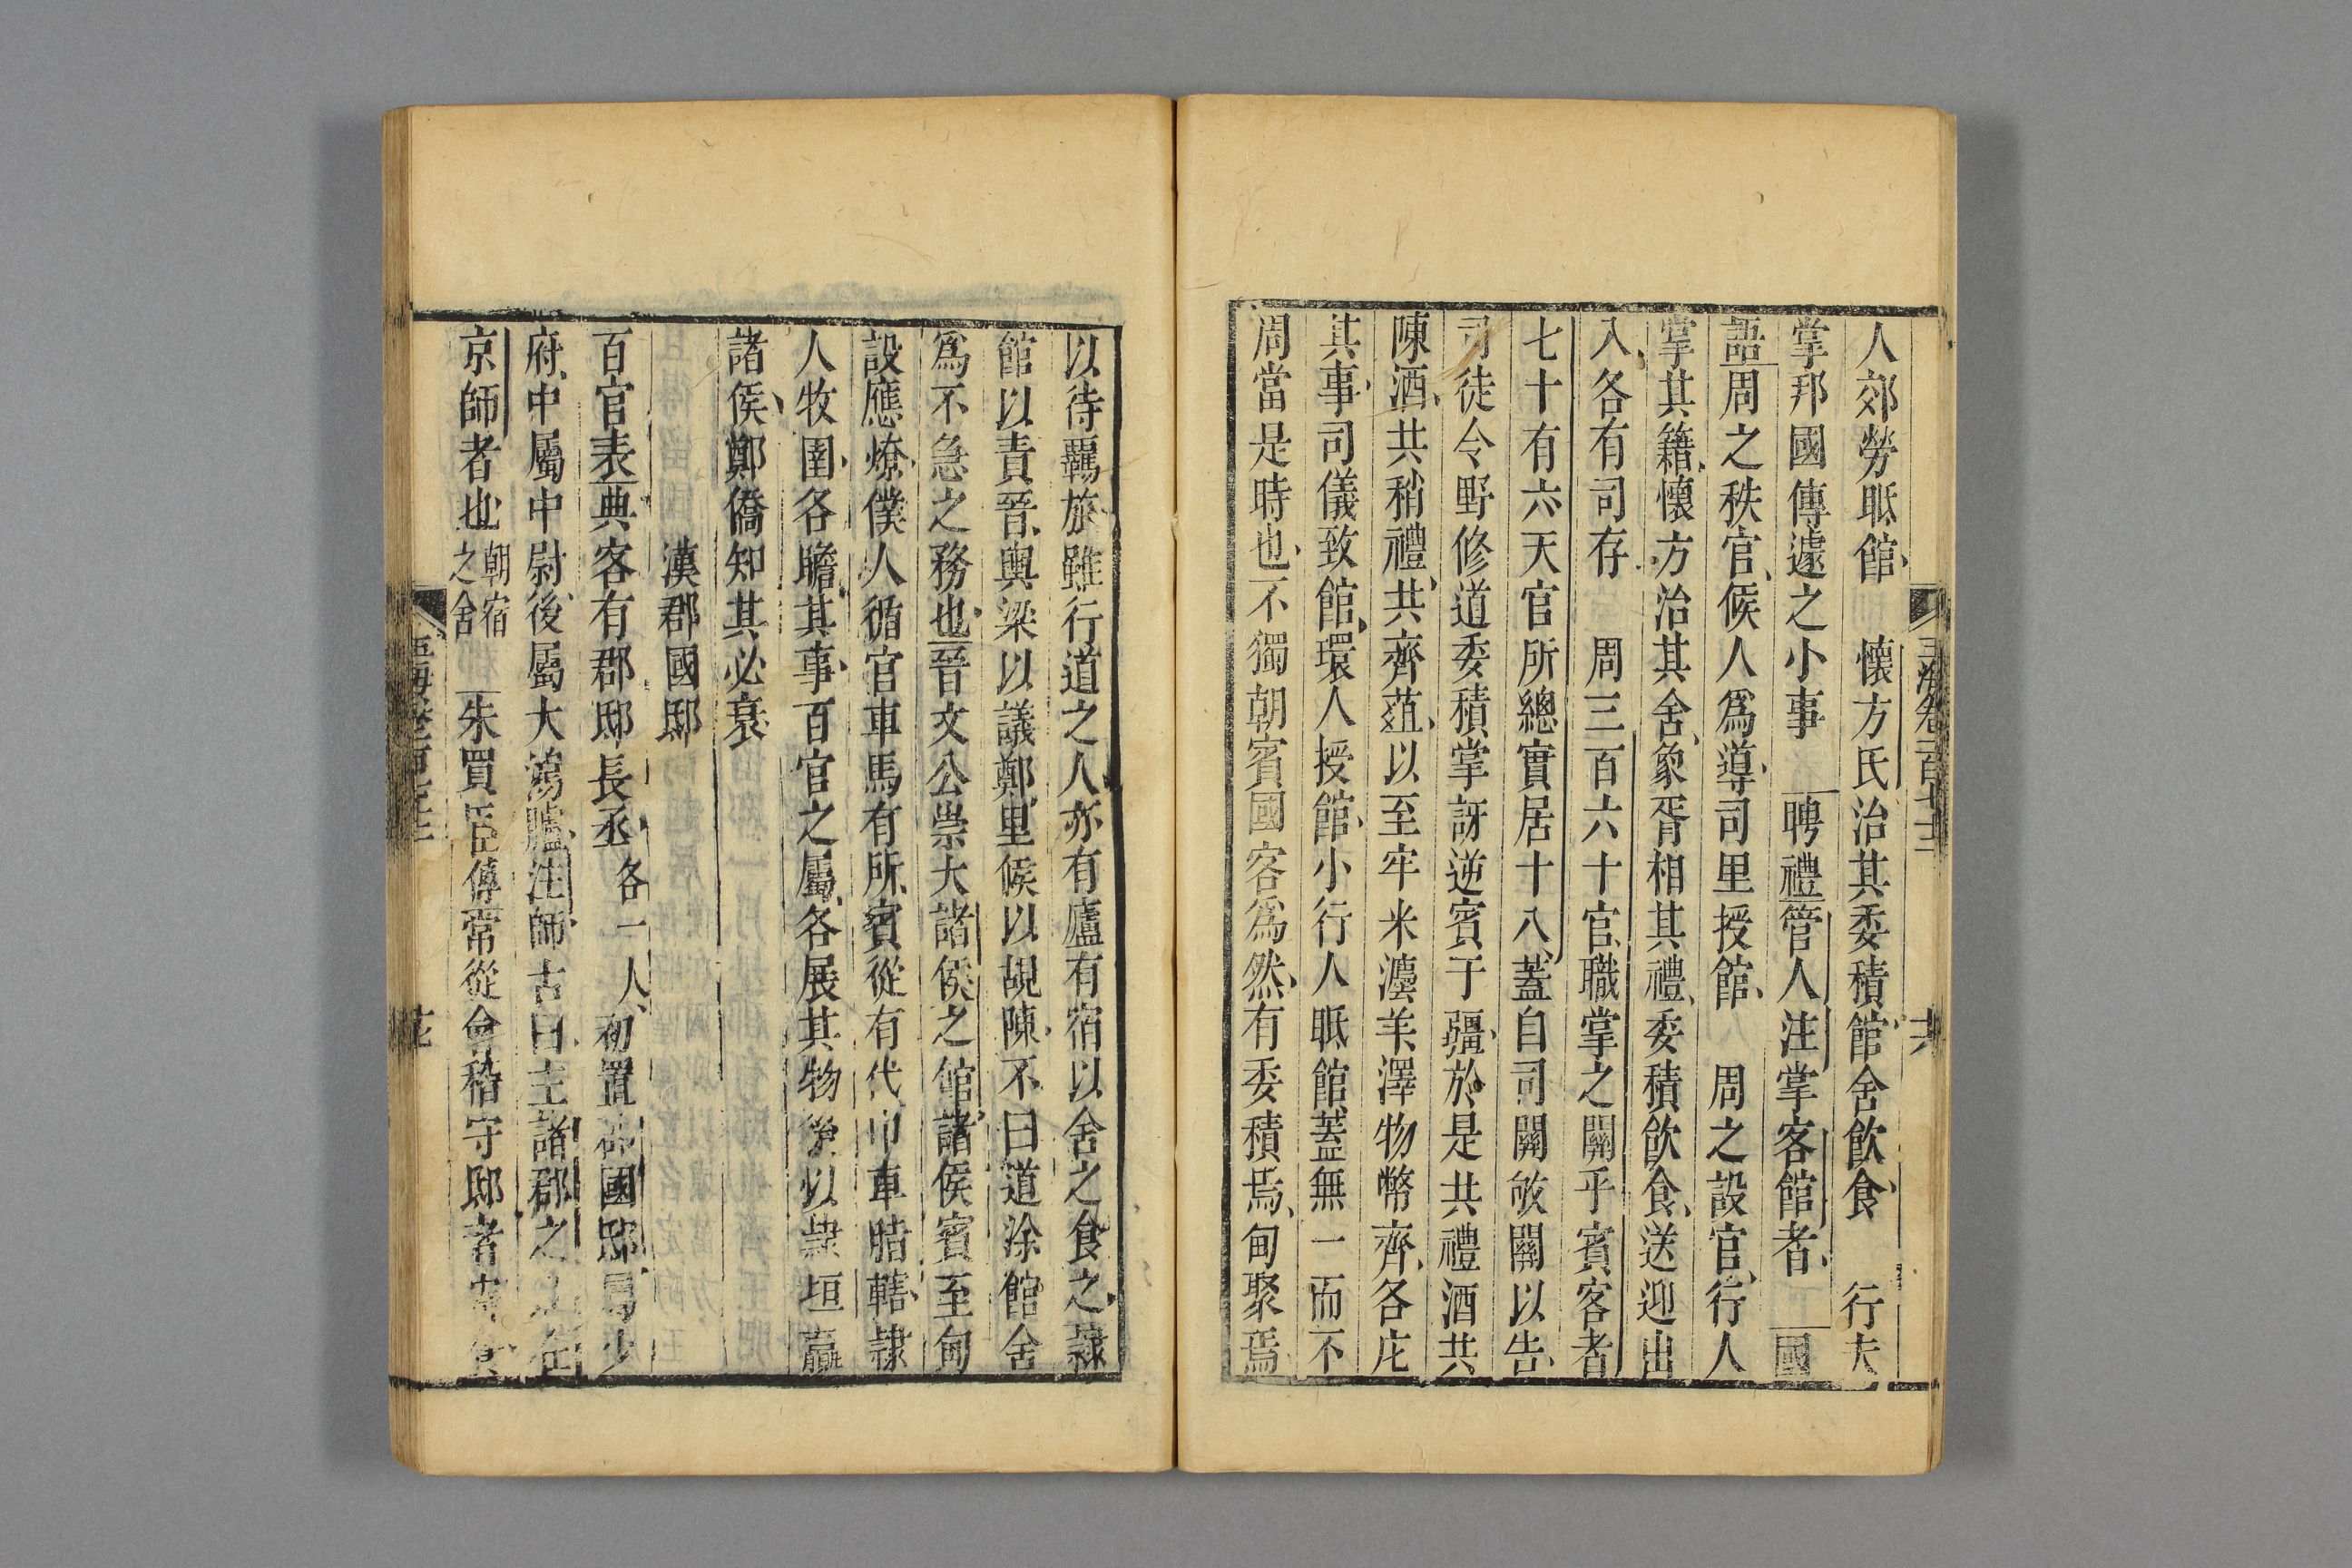 玉海卷一百七十二
人郊勞眡館 懷方氏治其委積館舍飲食 行夫
掌邦國傳遽之小事 聘禮管人注掌客館者 國
語周之秩官候人爲導司里授館 周之設官行人
掌其籍懷方治其舍象胥相其禮委積飲食送迎出
入各有司存 周三百六十官職掌之關乎賓客者
七十有六天官所總實居十八蓋自司關敂關以告
司徒令野修道委積掌訝逆賓于疆於是共禮酒共
陳酒共稍禮共齊菹以至牢米瀍羊澤物幣齊各庀
其事司儀致館環人授館小行人眡館蓋無一而不
周當是時也不獨朝賓國客爲然有委積焉甸聚焉
以待羈旅雖行道之人亦有廬有宿以舍之食之隸
館以責晉輿梁以議鄭里候以覘陳不曰道涂館舍
爲不急之務也晉文公崇大諸侯之館諸侯賓至甸
設庭燎僕人循官車馬有所賓從有代巾車脂轄隸
人牧圉各瞻其事百官之屬各展其物後以隸垣嬴
諸侯鄭僑知其必衰
漢郡國邸
百官表典客有郡邸長丞各一人初置郡國邸屬少
府中屬中尉後屬大鴻臚注師古曰主諸郡之邸在
京師者也朝宿之舍 朱買臣傳常從會稽守邸者寄食